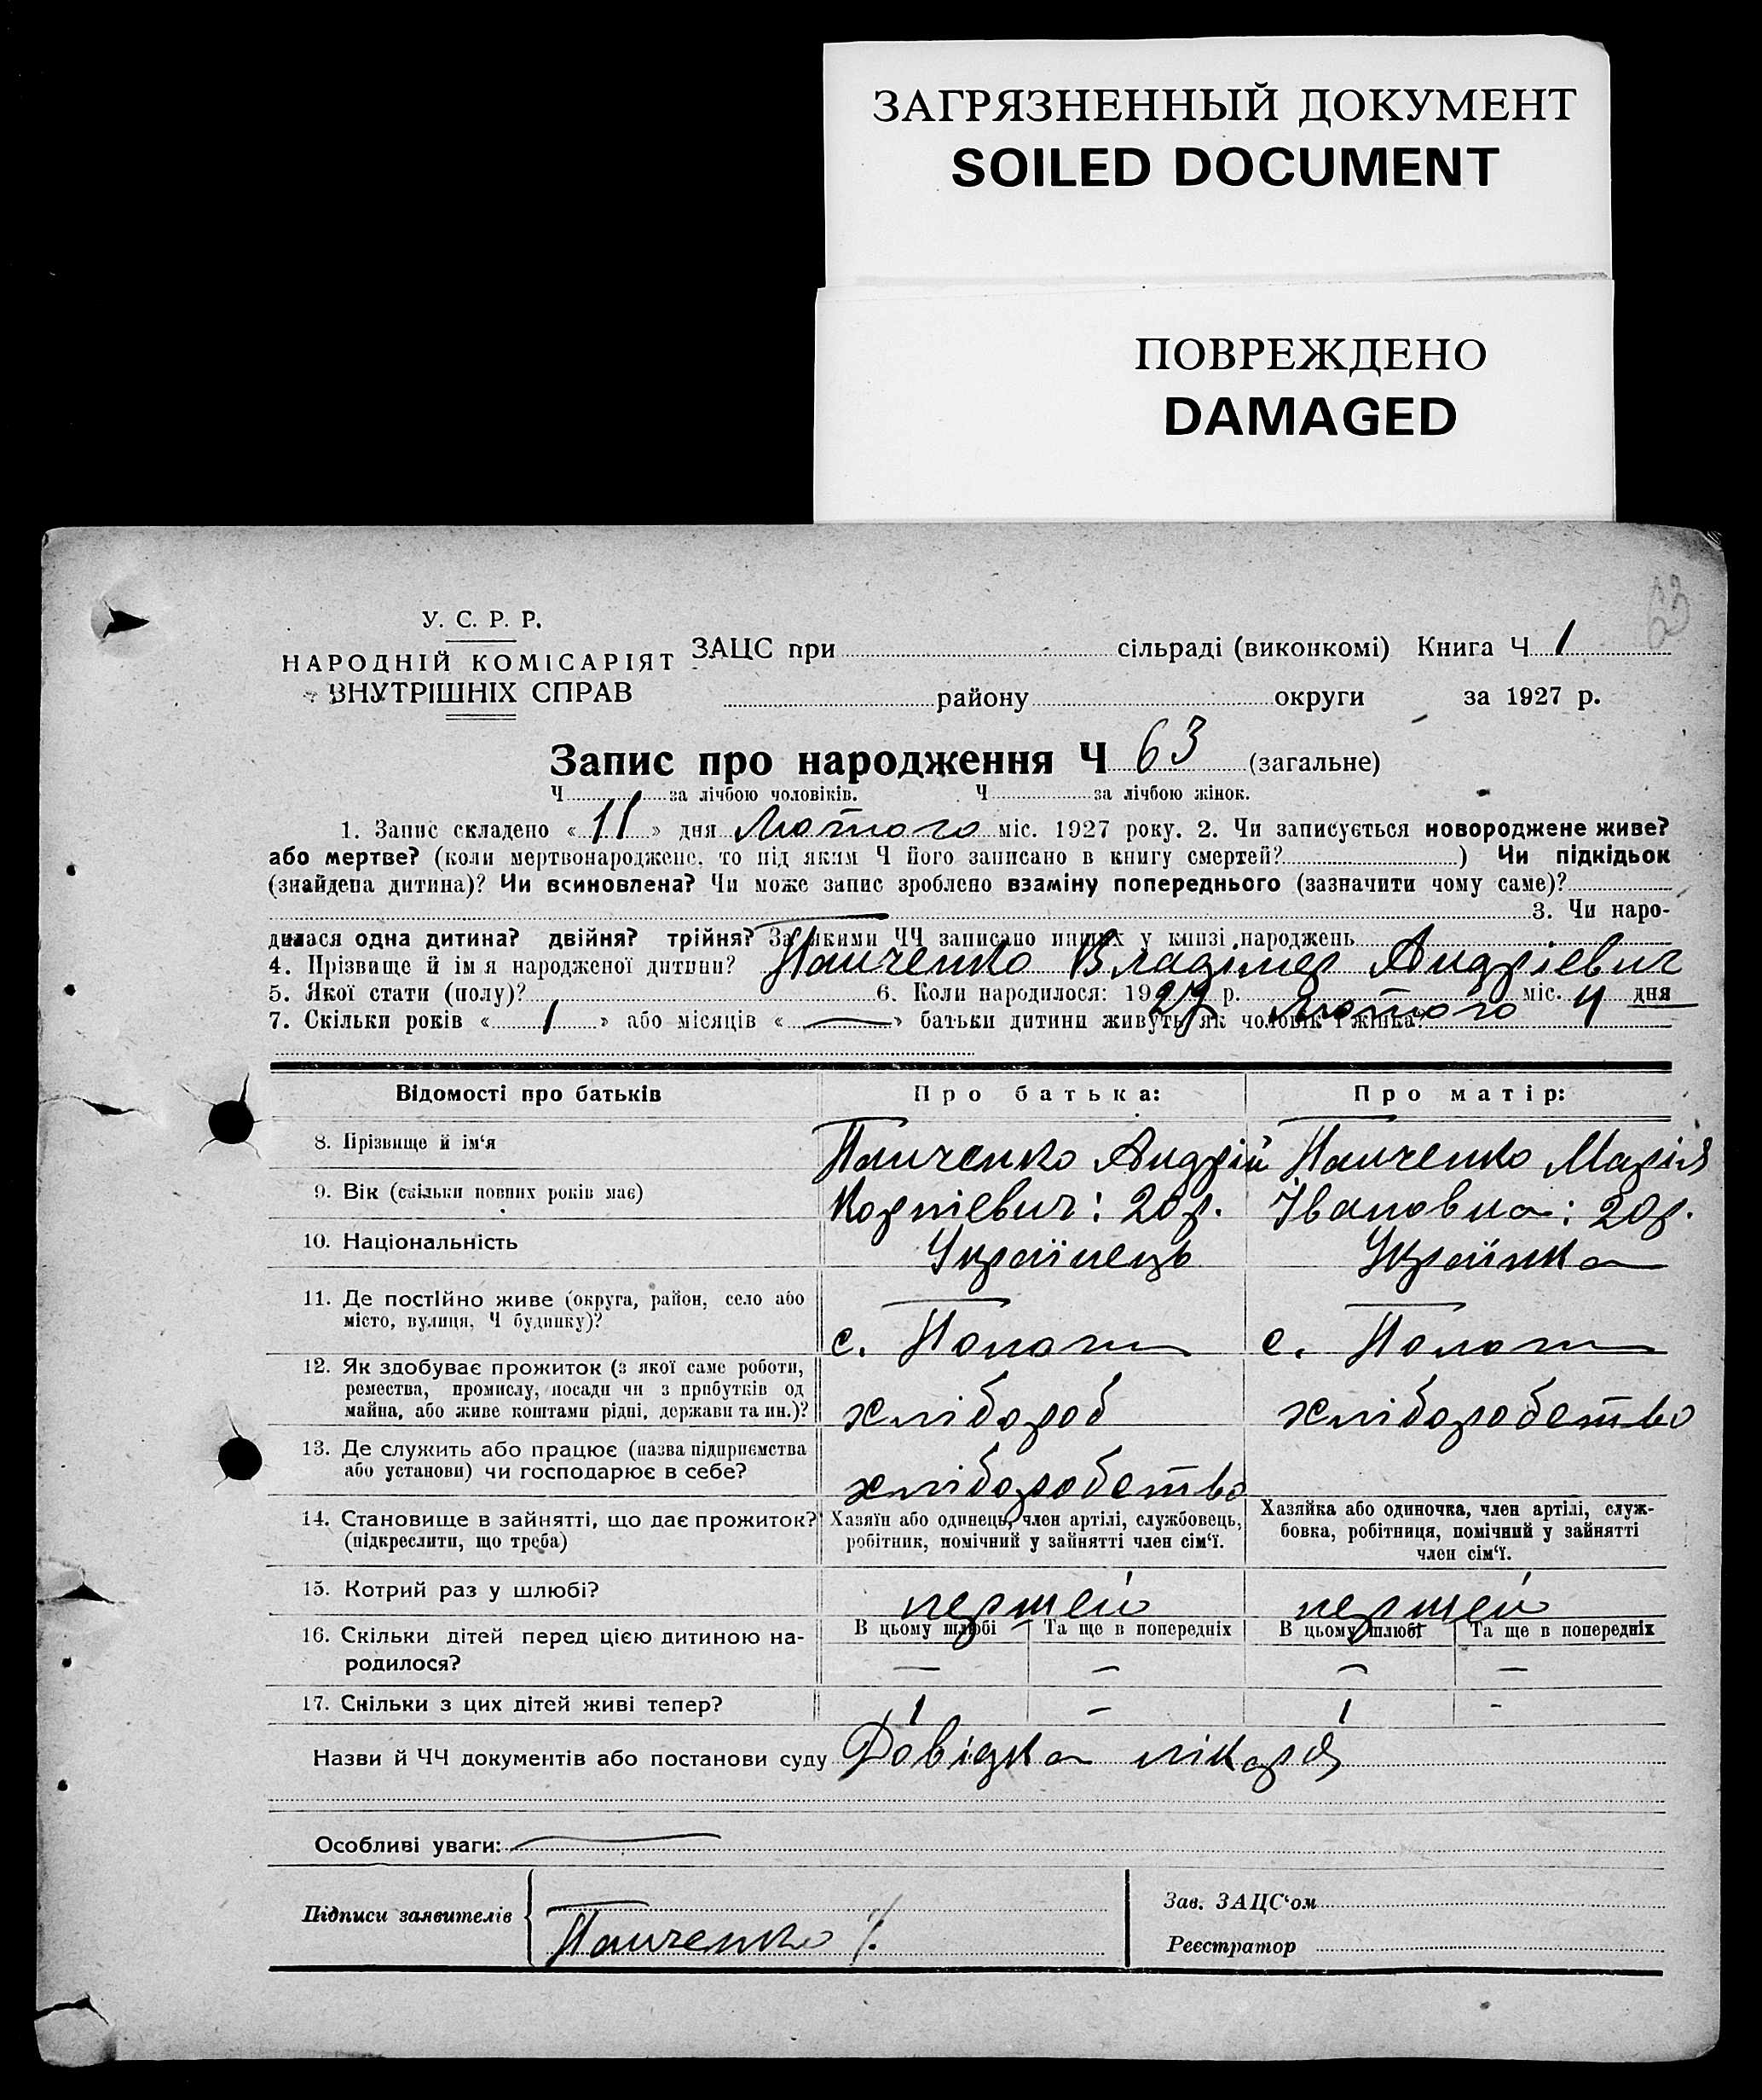 ЗАГРЯЗНЕННЫЙ ДОКУМЕНТ
SOILED DOCUMENT
ПОВРЕЖДЕНО
DAMAGED
63
У. С. Р. Р.
НАРОДНІЙ КОМІСАРІЯТ
ВНУТРІШНІХ СПРАВ
ЗАЦС при сільраді (виконкомі) Книга Ч 1
району округи за 1927 р.
Запис про народження Ч 63 (загальне)
Ч за лічбою чоловіків. Ч за лічбою жінок.
1. Запис складено « 11 » дня Лютого міс. 1927 року. 2. Чи записується новороджене живе?
або мертве? (коли мертвонароджене, то під яким Ч його записано в книгу смертей? ) Чи підкідьок
(знайдена дитина)? Чи всиновлена? Чи може запис зроблено взаміну попереднього (зазначити чому саме)?
3. Чи наро-
дилася одна дитина? двійня? трійня? За якими ЧЧ записано инших у книзі народжень
4. Прізвище й ім'я народженої дитини? Панченко Владімер Андріевич
5. Якої стати (полу)? 6. Коли народилося: 1927 р. лютого міс. 4 дня
7. Скільки років « 1 » або місяців « — » батьки дитини живуть як чоловік і жінка?
Відомості про батьків Про батька: Про матір:
8. Прізвище й ім'я Панченко Андрій Панченко Марія
9. Вік (скільки повних років має) Корніевич: 20 р. Івановна: 20 р.
10. Національність Українець Українка
11. Де постійно живе (округа, район, село або
місто, вулиця, Ч будинку)? с. Пологи с. Пологи
12. Як здобуває прожиток (з якої саме роботи,
ремества, промислу, посади чи з прибутків од
майна, або живе коштами рідні, держави та ин.)? хлібороб хліборобство
13. Де служить або працює (назва підприємства
або установи) чи господарює в себе? хліборобство
14. Становище в зайнятті, що дає прожиток? Хазяїн або одинець, член артілі, службовець, Хазяйка або одиночка, член артілі, служ-
(підкреслити, що треба) робітник, помічний у зайнятті член сім'ї. бовка, робітниця, помічний у зайнятті
член сім'ї.
15. Котрий раз у шлюбі? першей першей
16. Скільки дітей перед цією дитиною на- В цьому шлюбі Та ще в попередніх В цьому шлюбі Та ще в попередніх
родилося? — — — —
17. Скільки з цих дітей живі тепер? 1 — 1 -
Назви й ЧЧ документів або постанови суду Довідка лікаря
Особливі уваги: —
Підписи заявителів Панченко Зав. ЗАЦС'ом
Реєстратор